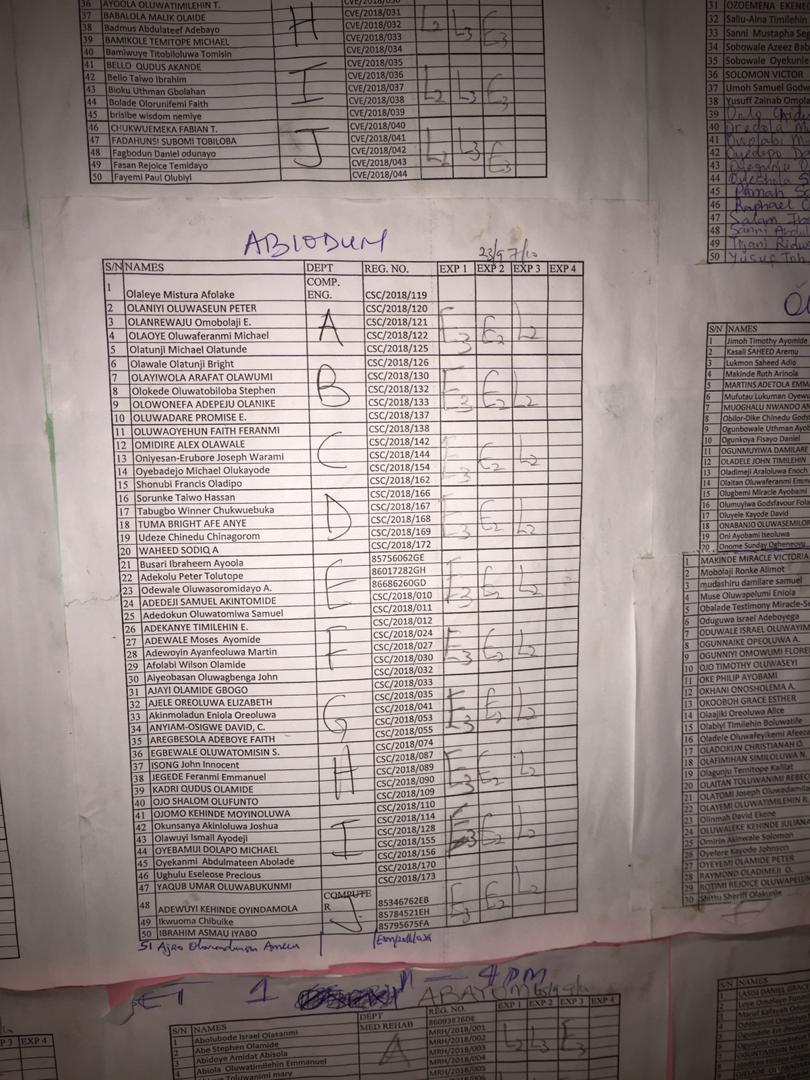 36 AYOOLA OLUWATIMILEHIN T. CVE/2018/030
37 BABALOLA MALIK OLAIDE CVE/2018/031
38 Badmus Abdulateef Adebayo H CVE/2018/032 L2 L3 E3
39 BAMIKOLE TEMITOPE MICHAEL CVE/2018/033
40 Bamiwuye Titobiloluwa Tomisin CVE/2018/034
41 BELLO QUDUS AKANDE CVE/2018/035
42 Bello Taiwo Ibrahim CVE/2018/036
43 Bioku Uthman Gbolahan I CVE/2018/037 L2 L3 E3
44 Bolade Olorunifemi Faith CVE/2018/038
45 brisibe wisdom nemiye CVE/2018/039
46 CHUKWUEMEKA FABIAN T. CVE/2018/040
47 FADAHUNSI SUBOMI TOBILOBA J CVE/2018/041
48 Fagbodun Daniel odunayo CVE/2018/042 L2 L3 E3
49 Fasan Rejoice Temidayo CVE/2018/043
50 Fayemi Paul Olubiyi CVE/2018/044
ABIODUN
23/9 7/10
S/N NAMES DEPT REG. NO. EXP 1 EXP 2 EXP 3 EXP 4
1 Olaleye Mistura Afolake COMP. ENG. CSC/2018/119
2 OLANIYI OLUWASEUN PETER CSC/2018/120
3 OLANREWAJU Omobolaji E. A CSC/2018/121 E3 E2 L2
4 OLAOYE Oluwaferanmi Michael CSC/2018/122
5 Olatunji Michael Olatunde CSC/2018/125
6 Olawale Olatunji Bright CSC/2018/126
7 OLAYIWOLA ARAFAT OLAWUMI CSC/2018/130
8 Olokede Oluwatobiloba Stephen B CSC/2018/132 E3 E2 L2
9 OLOWONEFA ADEPEJU OLANIKE CSC/2018/133
10 OLUWADARE PROMISE E. CSC/2018/137
11 OLUWAOYEHUN FAITH FERANMI CSC/2018/138
12 OMIDIRE ALEX OLAWALE CSC/2018/142
13 Oniyesan-Erubore Joseph Warami C CSC/2018/144 E3 E2 L2
14 Oyebadejo Michael Olukayode CSC/2018/154
15 Shonubi Francis Oladipo CSC/2018/162
16 Sorunke Taiwo Hassan CSC/2018/166
17 Tabugbo Winner Chukwuebuka CSC/2018/167
18 TUMA BRIGHT AFE ANYE D CSC/2018/168 E3 E2 L2
19 Udeze Chinedu Chinagorom CSC/2018/169
20 WAHEED SODIQ A CSC/2018/172
21 Busari Ibraheem Ayoola 85756062GE
22 Adekolu Peter Tolutope 86017282GH
23 Odewale Oluwasoromidayo A. E 86686260GD E3 E2 L2
24 ADEDEJI SAMUEL AKINTOMIDE CSC/2018/010
25 Adedokun Oluwatomiwa Samuel CSC/2018/011
26 ADEKANYE TIMILEHIN E. CSC/2018/012
27 ADEWALE Moses Ayomide CSC/2018/024
28 Adewoyin Ayanfeoluwa Martin F CSC/2018/027 E3 E2 L2
29 Afolabi Wilson Olamide CSC/2018/030
30 Aiyeobasan Oluwagbenga John CSC/2018/032
31 AJAYI OLAMIDE GBOGO CSC/2018/033
32 AJELE OREOLUWA ELIZABETH CSC/2018/035
33 Akinmoladun Eniola Oreoluwa G CSC/2018/041 E3 E2 L2
34 ANYIAM-OSIGWE DAVID, C. CSC/2018/053
35 AREGBESOLA ADEBOYE FAITH CSC/2018/055
36 EGBEWALE OLUWATOMISIN S. CSC/2018/074
37 ISONG John Innocent CSC/2018/087
38 JEGEDE Feranmi Emmanuel H CSC/2018/089 E3 E2 L2
39 KADRI QUDUS OLAMIDE CSC/2018/090
40 OJO SHALOM OLUFUNTO CSC/2018/109
41 OJOMO KEHINDE MOYINOLUWA CSC/2018/110
42 Okunsanya Akinloluwa Joshua CSC/2018/114
43 Olawuyi Ismail Ayodeji I CSC/2018/128 E3 E2 L2
44 OYEBAMIJI DOLAPO MICHAEL CSC/2018/155
45 Oyekanmi Abdulmateen Abolade CSC/2018/156
46 Ughulu Eseleose Precious CSC/2018/170
47 YAQUB UMAR OLUWABUKUNMI CSC/2018/173
48 ADEWUYI KEHINDE OYINDAMOLA COMPUTE R 85346762EB
49 Ikwuoma Chibuike J 85784521EH E3 E2 L2
50 IBRAHIM ASMAU IYABO 85795675FA
51 Ajao
31 OZOEMENA EKENE
32 Saliu-Aina Timilehin
33 Sanni Mustapha Seg
34 Sobowale Azeez Bab
35 Sobowale Oyekunle
36 SOLOMON VICTOR
37 Umoh Samuel Godw
38 Yusuff Zainab Ompla
39
40
41
42
43
44
45
46 Raphael
47 Salam
48 Sanni
49
50 Yusuf
S/N NAMES
1 Jimoh Timothy Ayomide
2 Kasali SAHEED Aremu
3 Lukmon Saheed Adio
4 Makinde Ruth Arinola
5 MARTINS ADETOLA EMMA
6 Mufutau Lukuman Oyewu
7 MUOGHALU NWANDO AN
8 Obilor-Dike Chinedu Gods
9 Ogunbowale Uthman Ayob
10 Ogunkoya Fisayo Daniel
11 OGUNMUYIWA DAMILARE
12 OLADELE JOHN TIMILEHIN
13 Oladimeji Araloluwa Enoch
14 Olaitan Oluwaferanmi Emm
15 Olugbemi Miracle Ayobami
16 Olumuyiwa Godsfavour Fola
17 Oluyele Kayode David
18 ONABANJO OLUWASEMILOR
19 Oni Ayobami Iseoluwa
20 Onome Sunday Ogheneovu
1 MAKINDE MIRACLE VICTORIA
2 Mobolaji Ronke Alimot
3 mudashiru damilare samuel
4 Muse Oluwapelumi Eniola
5 Obalade Testimony Miracle-Se
6 Oduguwa Israel Adeboyega
7 ODUWALE ISRAEL OLUWAYIM
8 OGUNNAIKE OPEOLUWA A.
9 OGUNNIYI OMOWUMI FLORE
10 OJO TIMOTHY OLUWASEYI
11 OKE PHILIP AYOBAMI
12 OKHANI ONOSHOLEMA A.
13 OKOOBOH GRACE ESTHER
14 Olaajiki Oreoluwa Alice
15 Olabiyi Timilehin Boluwatife
16 Oladele Oluwafeyikemi Afeeza
17 OLADOKUN CHRISTIANAH O.
18 OLAFIMIHAN SIMILOLUWA N.
19 Olagunju Temitope Kaillat
20 OLAITAN TOLUWANIMI REBEC
21 OLATOMI Joseph Oluwadamila
22 OLAYEMI OLUWATIMILEHIN
23 Olinmah David Ekene
24 OLUWALEKE KEHINDE JULIANA
25 Omirin Akinwale Solomon
26 Oyelere Kayode Johnson
27 OYEYEMI OLAMIDE PETER
28 RAYMOND OLADIMEJI O.
29 ROTIMI REJOICE OLUWAPELUM
30 Shittu Sheriff Olakunle
SET 1 - 4PM
ABAYOMI
S/N NAMES DEPT REG. NO. EXP 1 EXP 2 EXP 3 EXP 4
1 Abolubode Israel Olasanmi MED REHAB 86093826DE
2 Abe Stephen Olamide MRH/2018/001
3 Abidoye Amidat Abisola A MRH/2018/002 L2 L3 E3
4 Abiola Oluwatimilehin Emmanuel MRH/2018/003
MRH/2018/004
MRH/2018/005
P 3 EXP 4
S/N NAMES
1 LASISI DANIEL GRACE